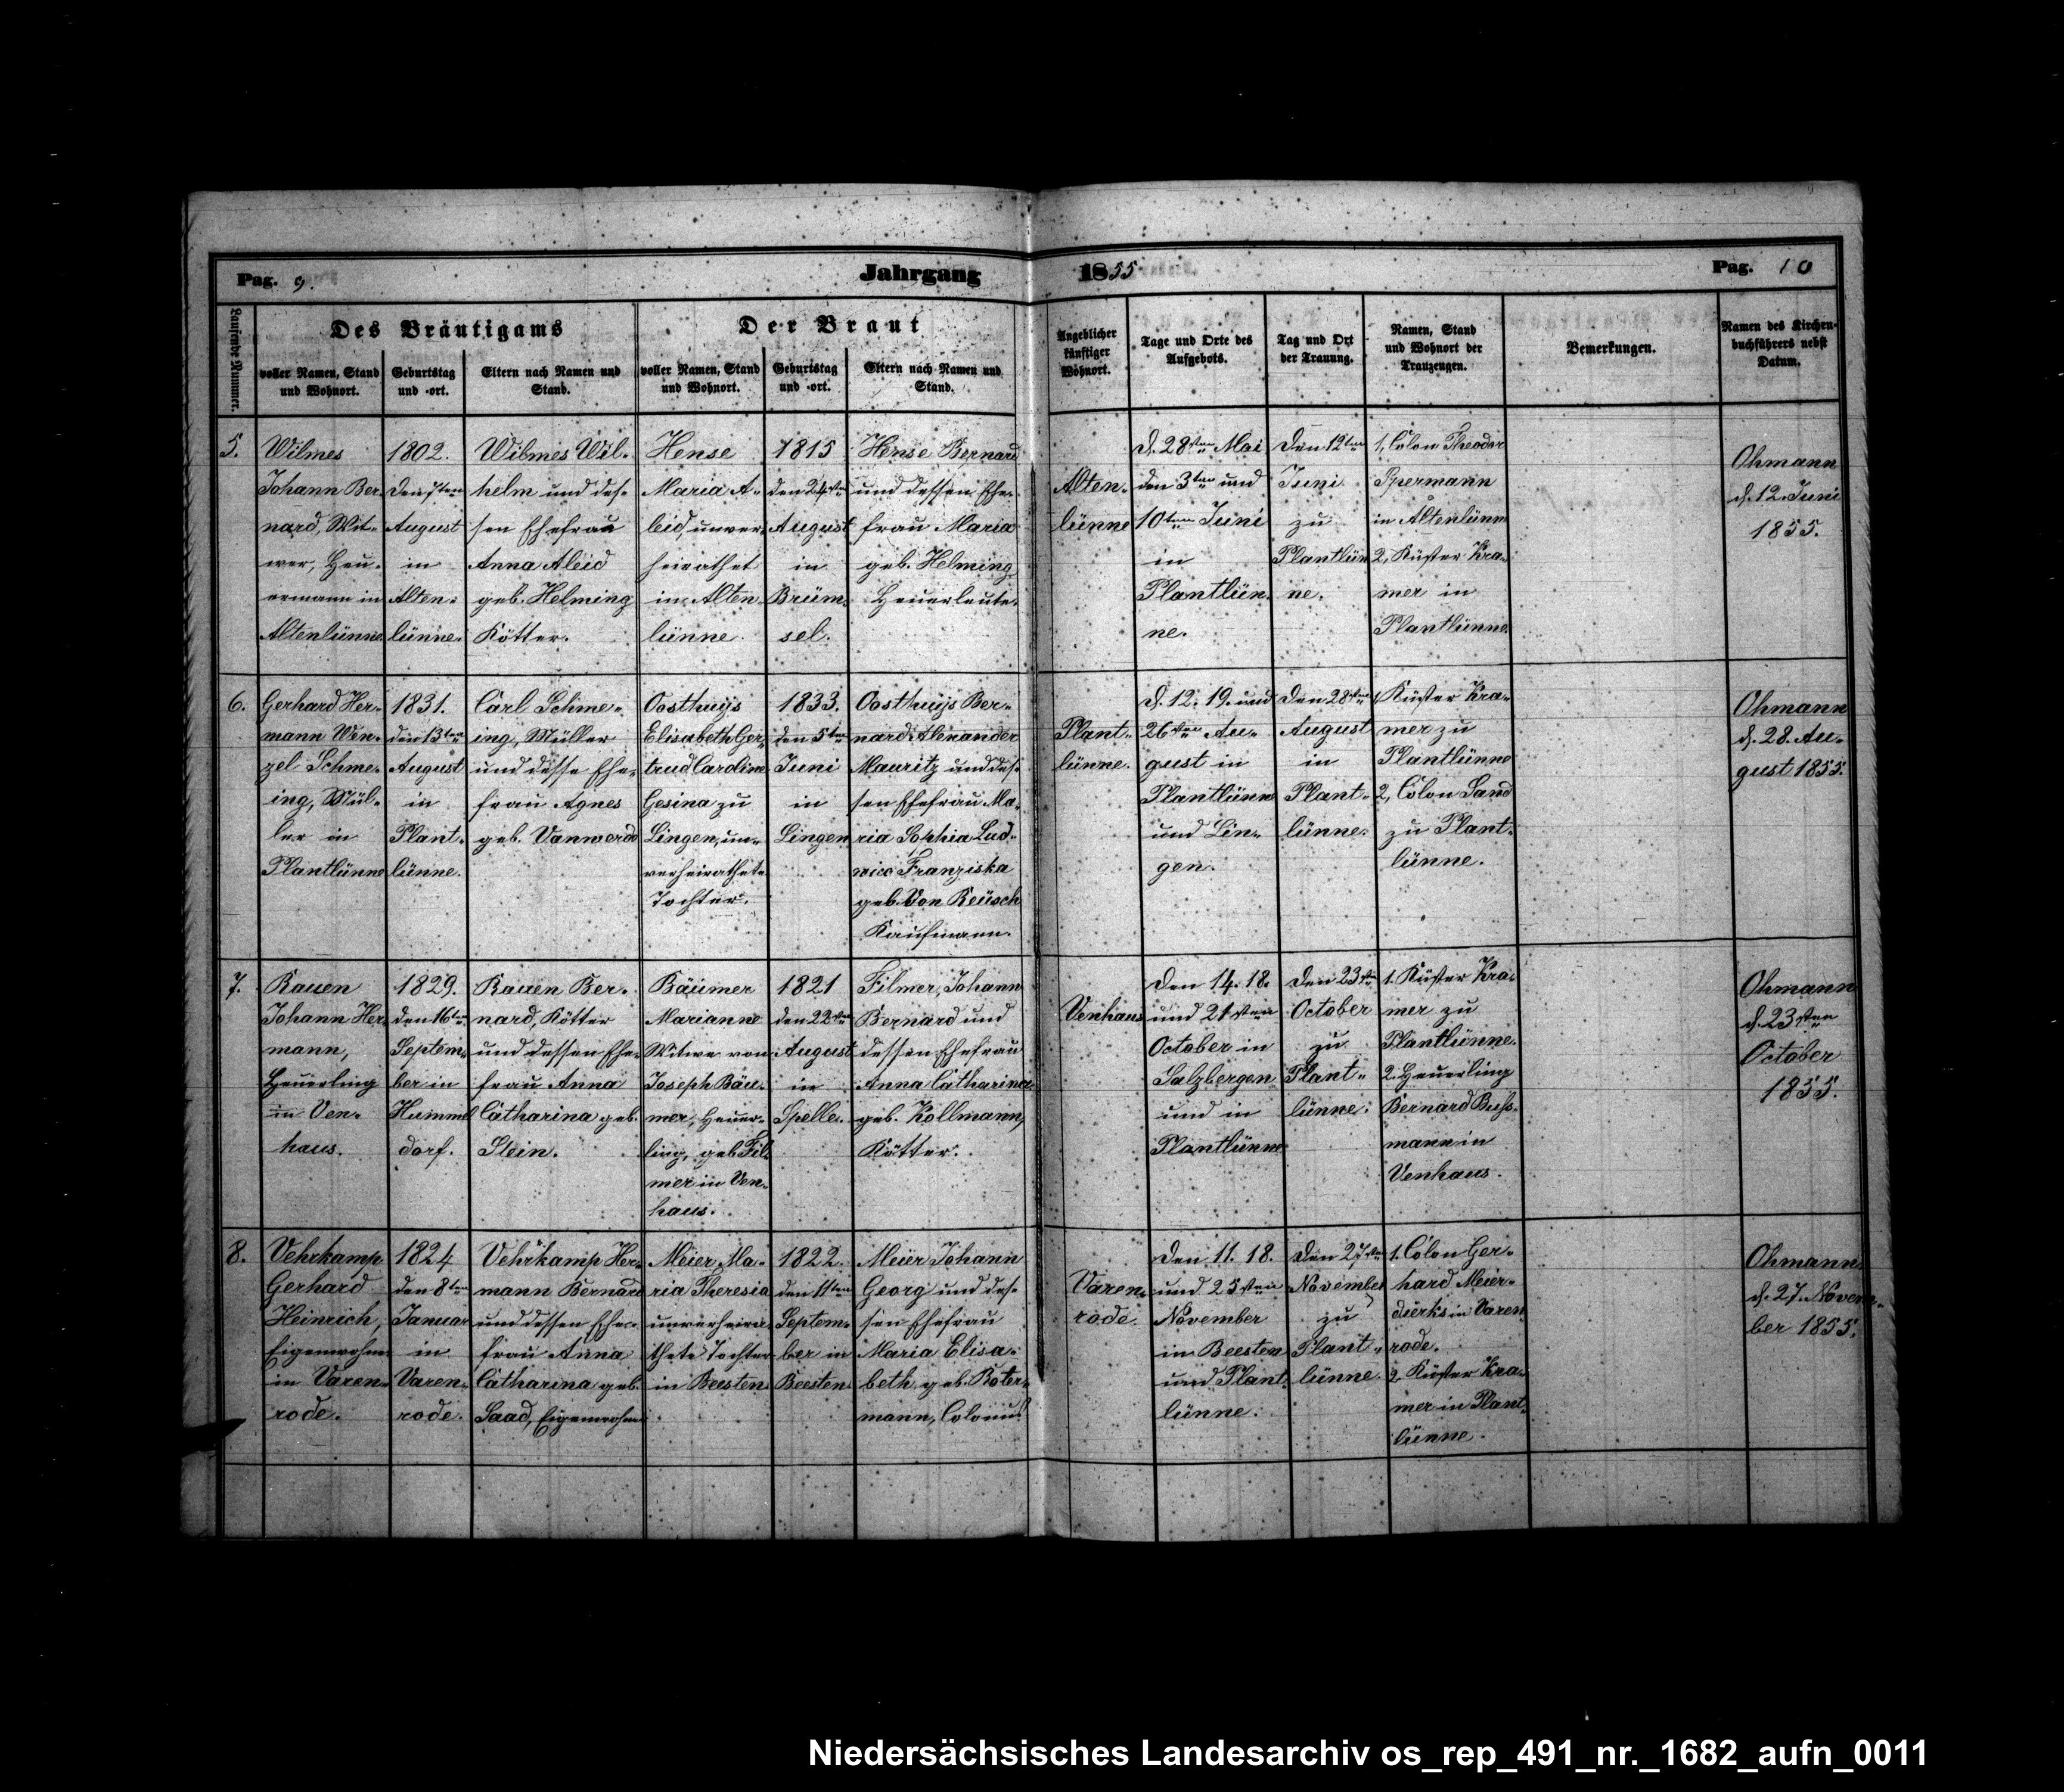 Pag. 9.
Jahrgang 1855
Pag. 10
Laufende Nummer.
Des Bräutigams
voller Namen, Stand
und Wohnort.
Geburtstag
und -ort.
Eltern nach Namen und
Stand.
Der Braut
voller Namen, Stand
und Wohnort.
Geburtstag
und -ort.
Eltern nach Namen und
Stand.
Angeblicher
künftiger
Wohnort.
Tage und Orte des
Aufgebots.
Tag und Ort
der Trauung.
Namen, Stand
und Wohnort der
Trauzeugen.
Bemerkungen.
Namen des Kirchen-
buchführers nebst
Datum.
5.
Wilmes
Johann Ber-
nard, Wit-
wer, Heu-
ermann in
Altenlünne.
1802.
den 7ten
August
in
Alten-
lünne.
Wilmes Wil-
helm und des-
sen Ehefrau
Anna Aleid
geb. Helming
Kötter.
Hense
Maria A-
leid, unver-
heirathet
in Alten
lünne.
1815
den 24sten
August
in
Brüm-
sel.
Hense Bernard
und dessen Ehe-
frau Maria
geb. Helming
Heuerleute.
Alten-
lünne
d. 28sten Mai
den 3ten und
10ten Juni
in
Plantlün-
ne.
den 12ten
Juni
zu
Plantlün
ne.
1, Colon Theodor
Spermann
in Altenlünne
2, Küster Kra-
mer in
Plantlünne.
Ohmann
d. 12. Juni
1855.
6.
Gerhard Her-
mann Wen-
zel Schme-
ing, Mül-
ler in
Plantlünne
1831.
den 13ten
August
in
Plant-
lünne.
Carl Schme-
ing, Müller
und desse Ehe-
frau Agnes
geb. Vanwerde
Oosthuijs
Elisabeth Ger-
trud Caroline
Gesina zu
Lingen, un-
verheirathete
Tochter.
1833.
den 5ten
Juni
in
Lingen
Oosthuijs Ber-
nard Alexander
Mauritz und des-
sen Ehefrau Ma-
ria Sophia Lud-
wica Franziska
geb. Von Reüsch
Kaufmann.
Plant-
lünne.
d. 12. 19. und
26sten Au-
gust in
Plantlünne
und Lin-
gen.
den 28sten
August
in
Plant-
lünne.
1, Küster Kra-
mer zu
Plantlünne
2, Colon Sand
zu Plant-
lünne.
Ohmann
d. 28. Au-
gust 1855.
7.
Rauen
Johann Her-
mann,
Heuerling
in Ven-
haus.
1829.
den 16ten
Septem-
ber in
Hummel
dorf.
Rauen Ber-
nard, Kötter
und dessen Ehe-
frau Anna
Catharina geb.
Stein.
Bäumer
Marianne
Witwe von
Joseph Bäu-
mer, Heuer-
ling, geb. Fil-
mer in Ven-
haus.
1821
den 22sten
August
in
Spelle.
Filmer, Johann
Bernard und
dessen Ehefrau
Anna Catharina
geb. Kollmann,
Kötter.
Venhaus
den 14. 18.
und 21sten
October in
Salzbergen
und in
Plantlünne
den 23sten
October
zu
Plant-
lünne.
1. Küster Kra-
mer zu
Plantlünne.
2. Heuerling
Bernard Buss-
mann in
Venhaus.
Ohmann
d. 23sten
October
1855.
8.
Vehrkamp
Gerhard
Heinrich,
Eigenwohner
in Varen-
rode.
1824
den 8ten
Januar
in
Varen-
rode.
Vehrkamp Her-
mann Bernard
und dessen Ehe-
frau Anna
Catharina geb.
Saad, Eigenwohner
Meier Ma-
ria Theresia
unverheira-
thete Tochter
in Beesten
1822.
den 11ten
Septem-
ber in
Beesten
Meier Johann
Georg und des-
sen Ehefrau
Maria Elisa-
beth geb. Roter-
mann, Colonus
Varen-
rode.
den 11. 18.
und 25sten
November
in Beesten
und Plant-
lünne.
den 27sten
November
zu
Plant-
lünne.
1. Colon Ger-
hard Meier-
dierks in Varen
rode.
2. Küster Kra-
mer in Plant-
lünne.
Ohmann
d. 27. Novem-
ber 1855.
Niedersächsisches Landesarchiv os_rep_491_nr._1682_aufn_0011